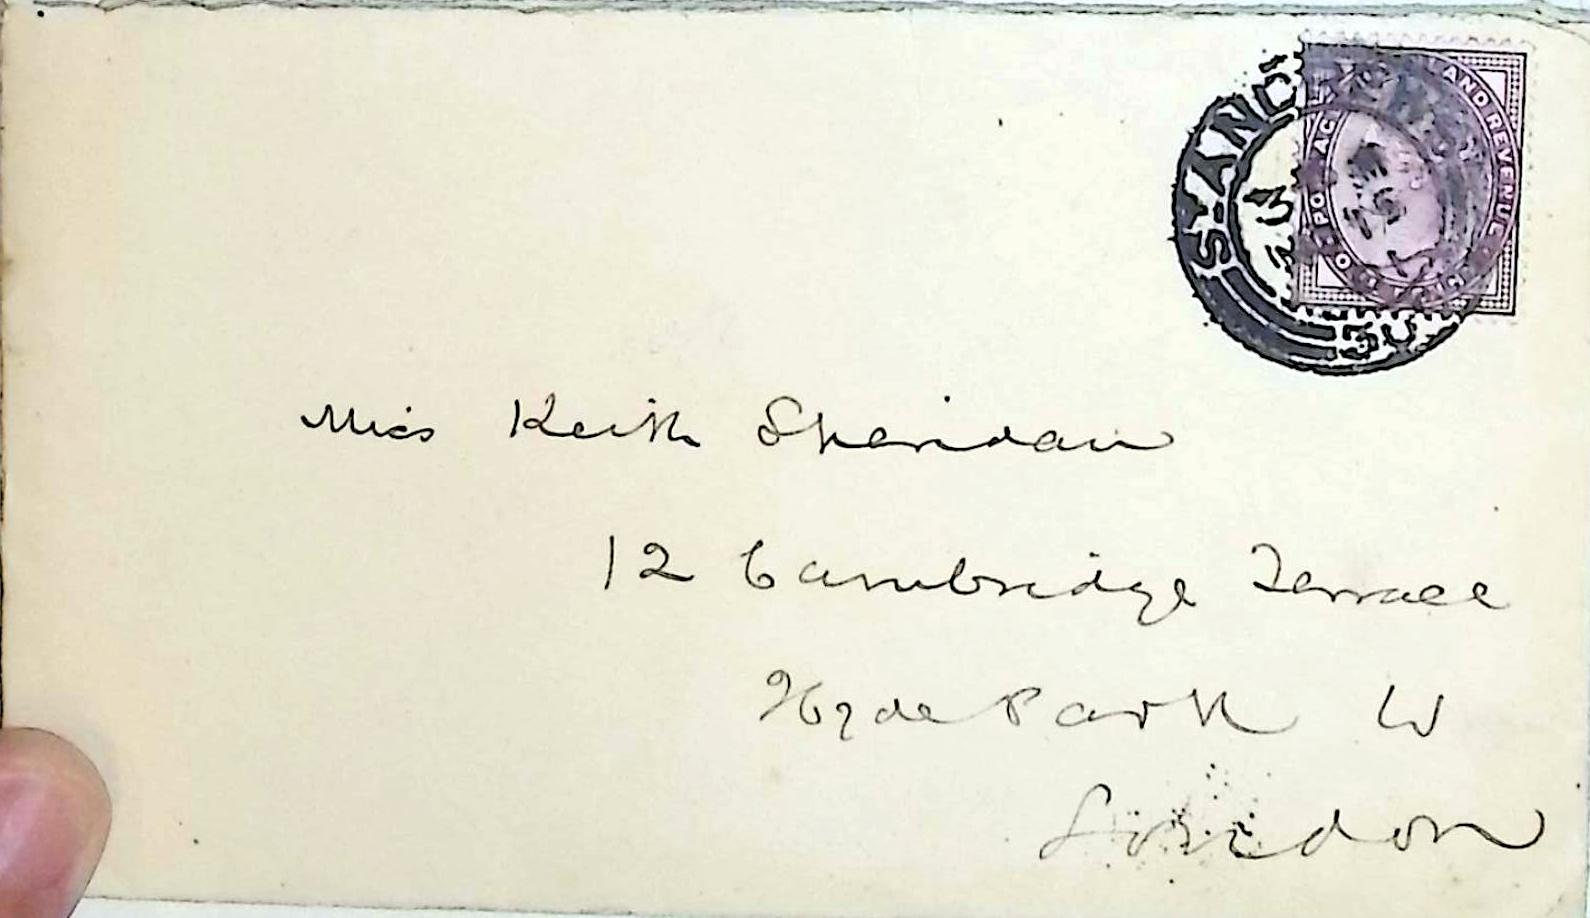 POSTAGE AND INLAND REVENUE
Miss Keith Sheridan
12 Cambridge Terrace
Hyde Park W
London